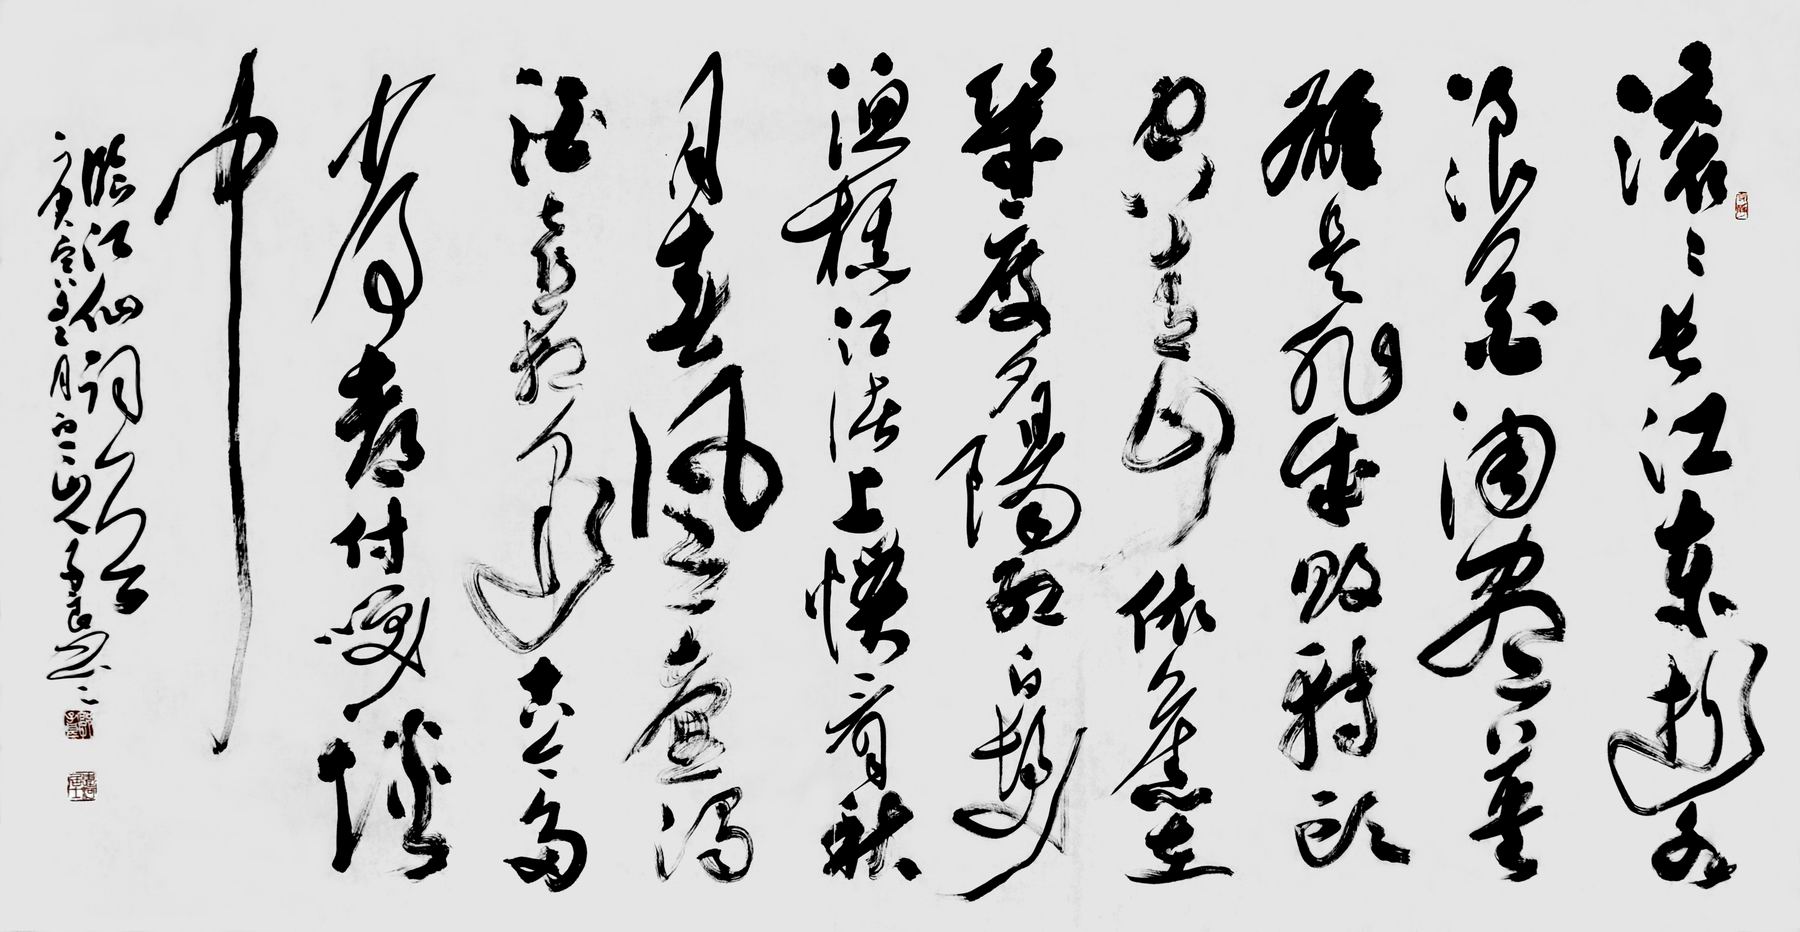 滚滚长江东逝水
浪花淘尽英
雄是非成败转头
空青山依旧在
几度夕阳红白发
渔樵江渚上惯看秋
月春风一壶浊
酒喜相逢古今多
少事都付笑谈
中
临江仙词
庚寅 二月 山人 书